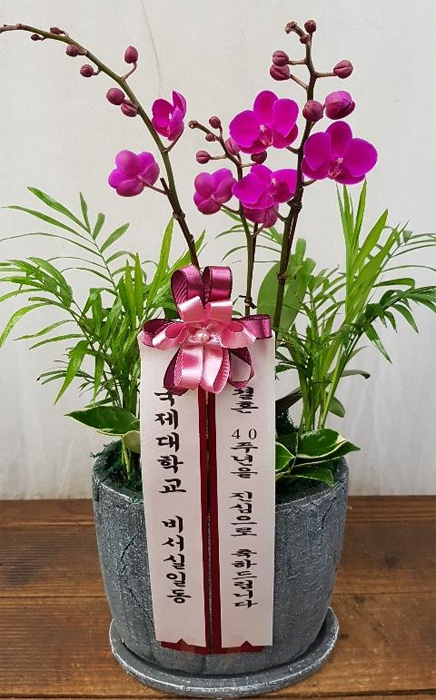 결혼 40주년을 진심으로 축하드립니다
국제대학교 비서실일동